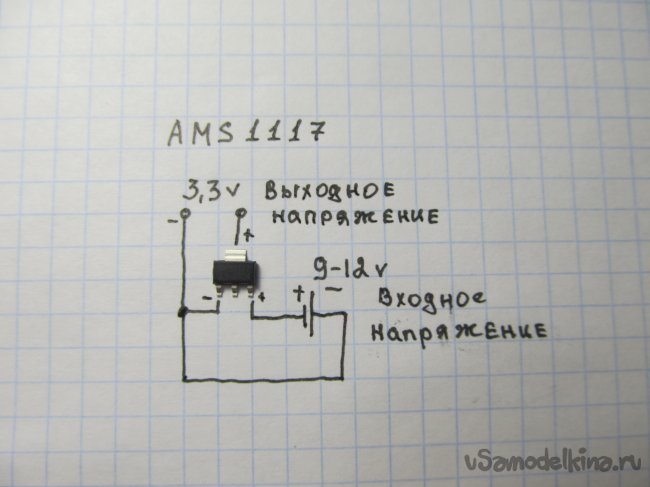 AMS1117
3,3v Выходное
напряжение
- +
9-12v
- + + -
Входное
напряжение
vSamodelkina.ru